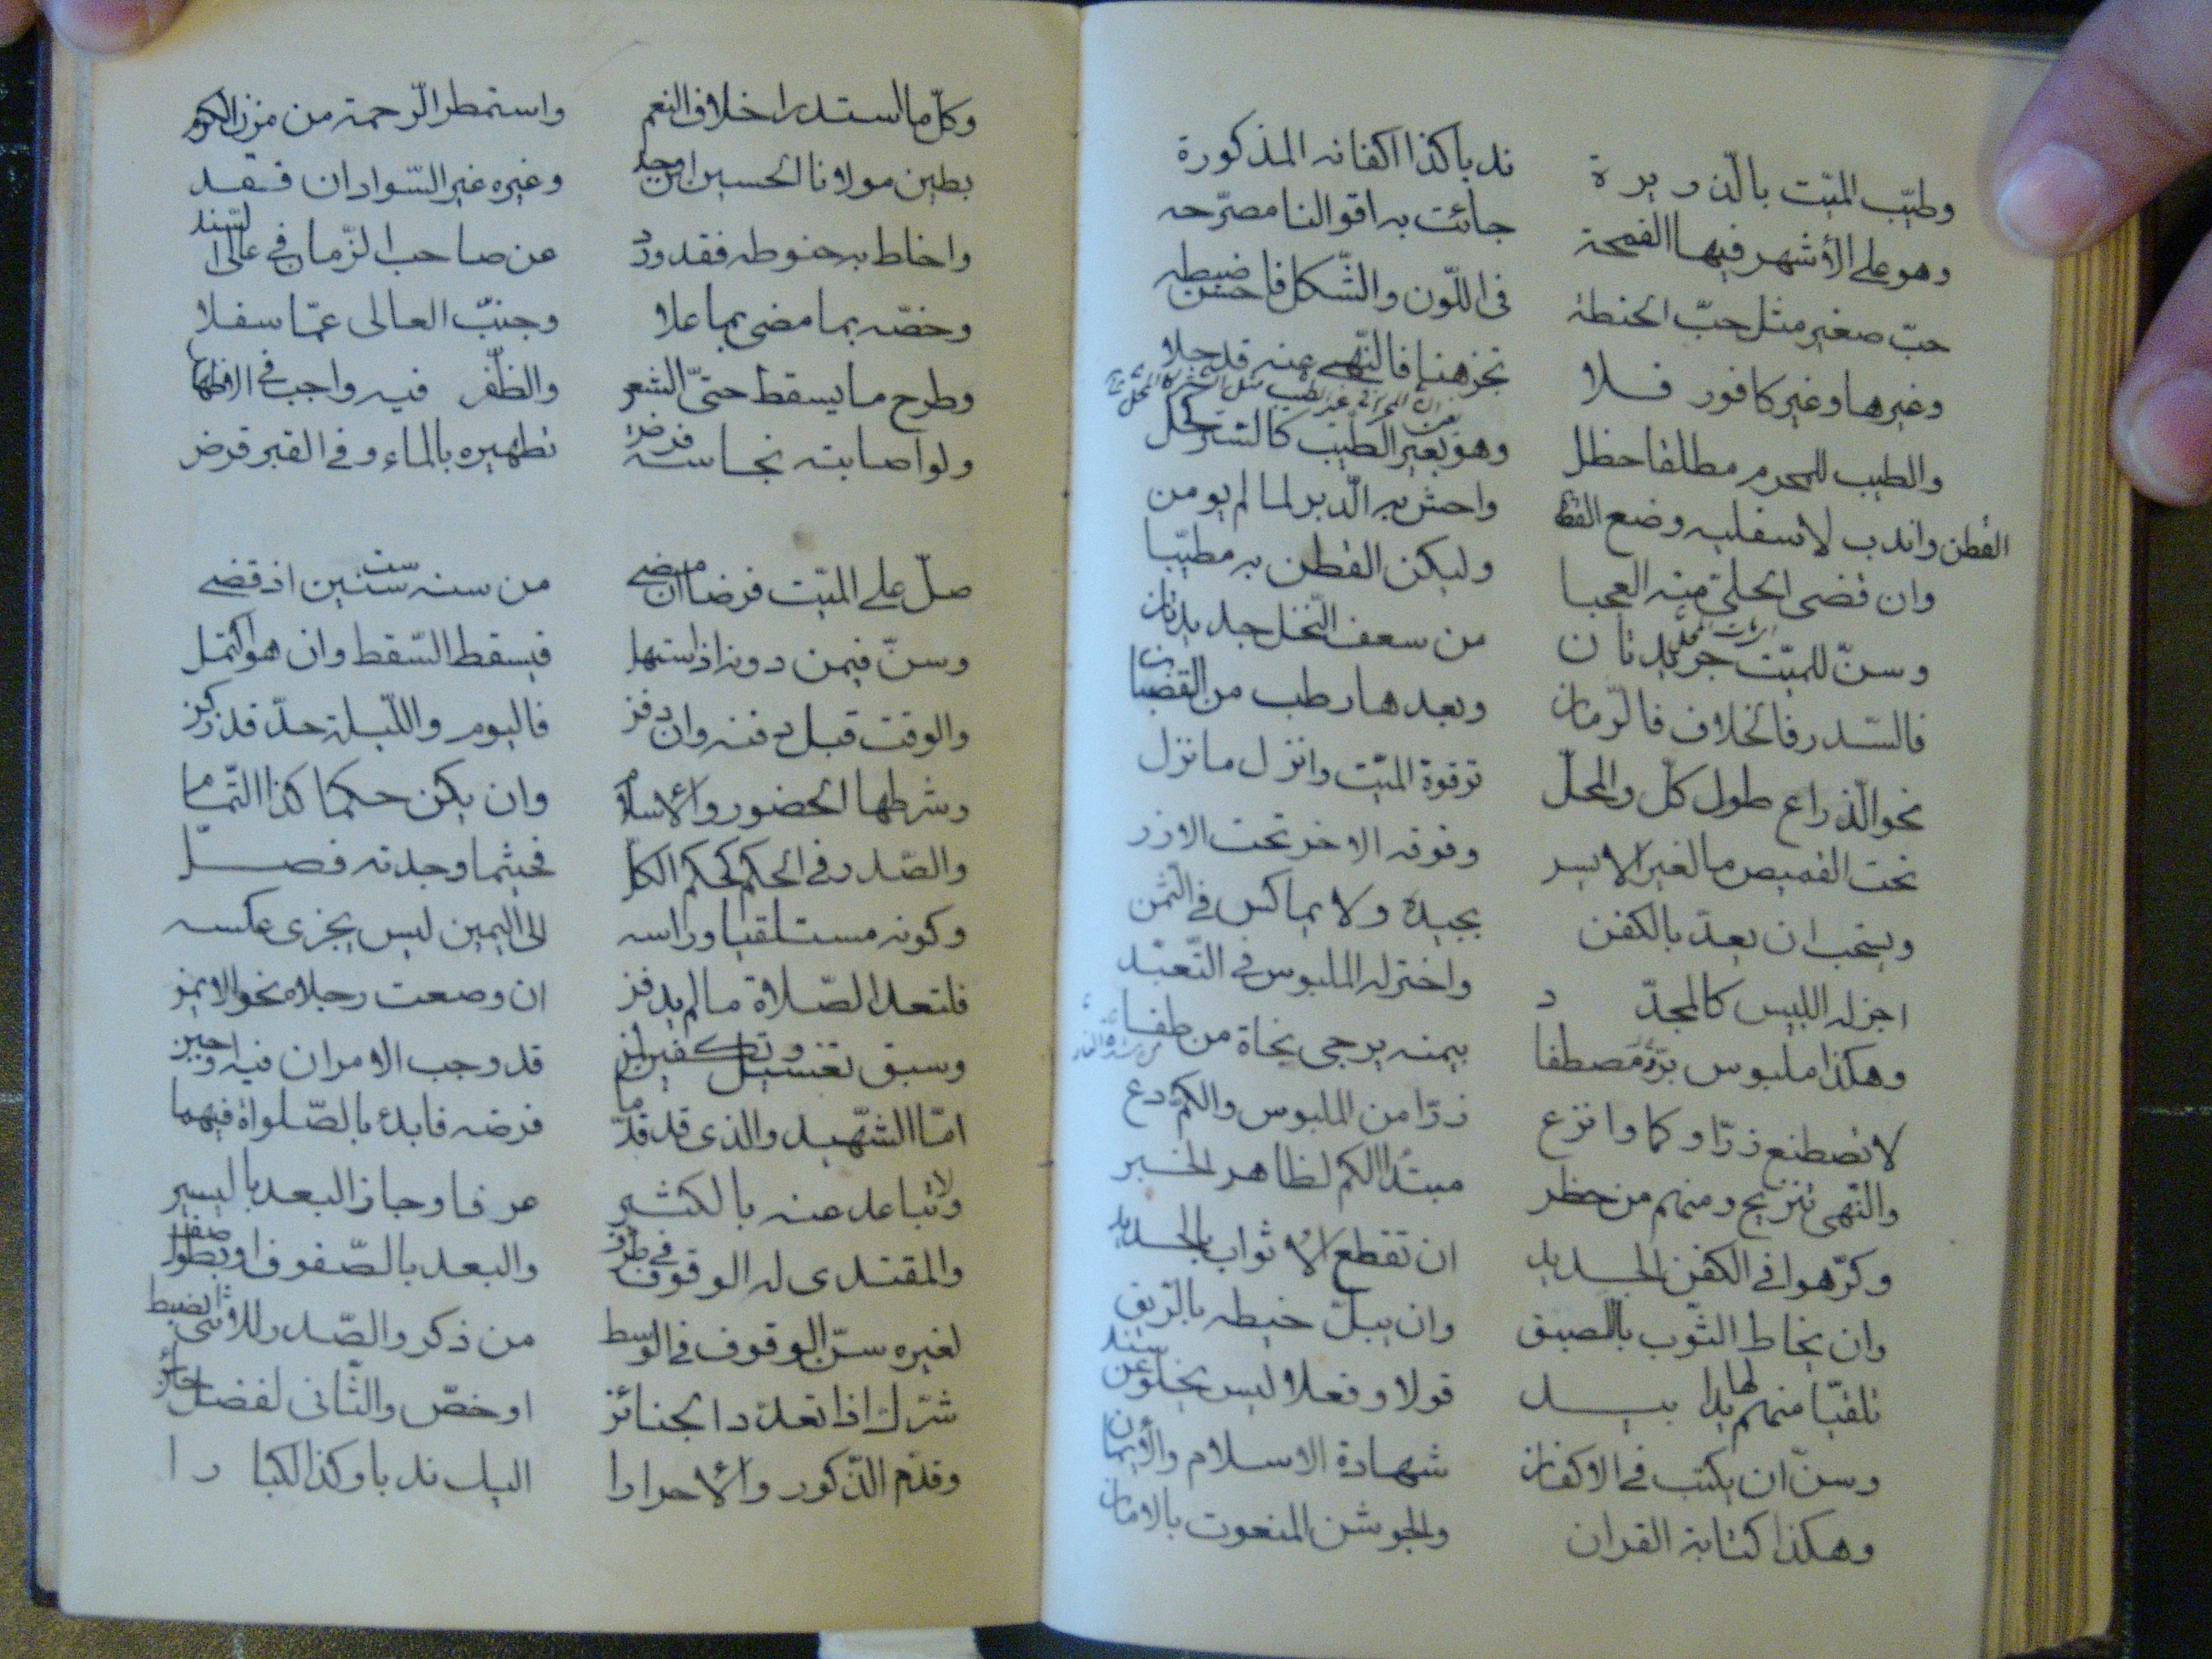 وطيّب الميّت بالذريرة ندبا كذا اكفانه المذكورة
وهو على الأشهر فيها القمحة جائت به اقوالنا مصرّحه
حبّ صغير مثل حبّ الحنطة فى اللّون والشّكل فاحسن ضبطه
وغيرها وغير كافور فلا تجزهنا فالنّهى عنه قد جلا
والطيب للمحرم مطلقا حظل وهو بغير الطّيب كالستر تحل
القطن واندب لاسفليه وضع القطن واحش به الدّبر لما لم يومن
وان قضى الحلّى منه العجبا وليكن القطن به مطيّبا
وسنّ للميّت جريدتان من سعف النّخل جديدتان
فالسّدر فالخلاف فالرّمان وبعدها رطب من القضبان
نحو الذّراع طول كلّ والمحلّ ترقوة الميّت وانزل ما نزل
تحت القميص ما لغير الايسر وفوقه الاخر تحت الازر
ويستحب ان يعدّ بالكفن بجيده ولا يماكس فى الثّمن
اجزله اللبيس كالمجدّد واختر له الملبوس فى التّعبّد
وهكذا ملبوس برّ مصطفا بيمنه يرجى نجاة من طفا
لا تصطنع زرّا وكما وانزع زرّا من الملبوس والكمّ دع
والنّهى تنزيه ومنهم من حظر مبتدأ الكم لظاهر الخبر
وكرّهوا فى الكفن الجديد ان تقطع الاثواب بالحديد
وان يخاط الثّوب بالصيق وان يبلّ خيطه بالرّيق
تلقيّا منهم لها يدا بيد قولا وفعلا ليس يخلو عن سند
وسنّ ان يكتب فى الاكفان شهادة الاسلام والأيمان
وهكذا كتابة القران والجوشن المنعوت بالامان
وكلّ ما استدر اخلاف النعم واستمطر الرّحمة من مزن الكرم
بطين مولانا الحسين ان وجد وغيره غير السّواد ان فقد
واخاط به حنوطه فقد ورد عن صاحب الزّمان فى عالى السند
وخصّه بما مضى بما علا وجنّب العالى عمّا سفلا
وطرح ما يسقط حتىّ الشعر والظّفر فيه واجب فى الاظهر
ولو اصابته نجاسة فرض تطهيره بالماء وفى القبر قرض
صلّ على الميّت فرضا ان مضى من سنه ست سنين اذ قضى
وسنّ فيمن دونه اذ استهل فيسقط السّقط وان هو اكتمل
والوقت قبل دفنه وان دفن فاليوم واللّيلة حدّ قد زكن
وشرطها الحضور والاسلام وان يكن حكما كذا التّمام
والصّدر فى الحكم كحكم الكلّ فحيثما وجدته فصلّ
وكونه مستلقيا وراسه الى اليمين ليس يجزى عكسه
فلتعد الصّلاة ما لم يدفن ان وضعت رجلاه نحو الايمن
وسبق تغسيل وتكفين لمن قد وجب الامران فيه
امّا الشّهيد والذى قد قدّما فرضه فابدء بالصّلواة فيهما
ولا تباعد عنه بالكثير عرفا وجاز البعد باليسير
والمقتدى له الوقوف فى والبعد بالصّفوف او
لغيره سنّ الوقوف فى الوسط من ذكر والصّدر للانثى انضبط
شرّك اذا تعدّد الجنائز او خصّ والثّانى لفضل حائز
وقدّم الذّكور والأحرارا اليك ندبا وكذا الكبارا